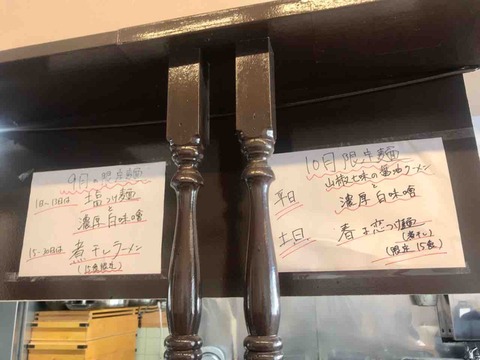 9月の限定麺
1日〜13日は 塩つけ麺
と
濃厚白味噌
15〜30日は 煮干しラーメン
(15食限定)
10月限定麺
山椒七味の醤油ラーメン
と
平日 濃厚白味噌
土日 春よ恋つけ麺
(煮干し)
(限定15食)